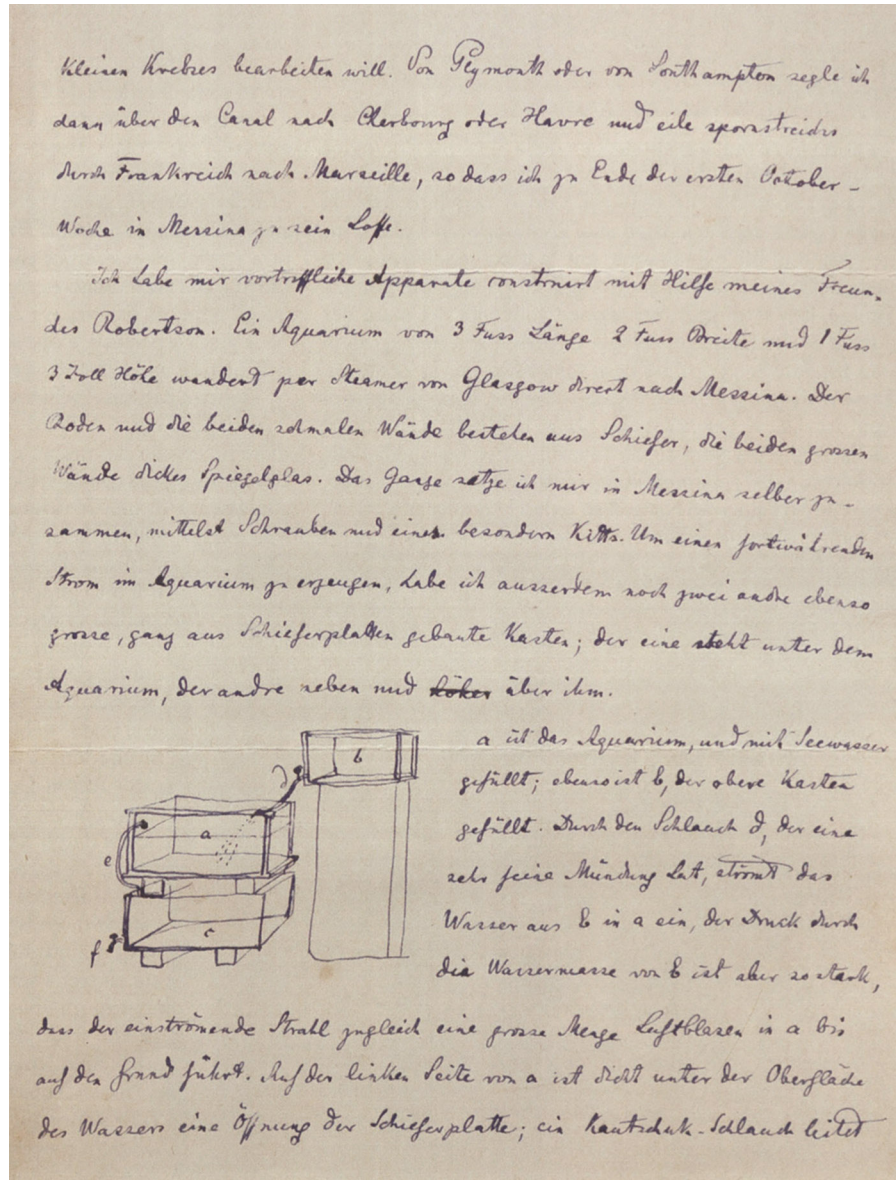 kleinen Krebses bearbeiten will. Von Plymouth oder von Southampton segle ich
dann über den Canal nach Cherbourg oder Havre und eile spornstreichs
durch Frankreich nach Marseille, so dass ich zu Ende der ersten October-
Woche in Messina zu sein hoffe.
Ich habe mir vortreffliche Apparate construirt mit Hilfe meines Freun-
des Robertson. Ein Aquarium von 3 Fuss Länge 2 Fuss Breite und 1 Fuss
3 Zoll Höhe wandert per Steamer von Glasgow direct nach Messina. Der
Boden und die beiden schmalen Wände bestehen aus Schiefer, die beiden grossen
Wände dickes Spiegelglas. Das Ganze setze ich mir in Messina selber zu-
sammen, mittelst Schrauben und eines besondern Kitts. Um einen fortwährenden
Strom im Aquarium zu erzeugen, habe ich ausserdem noch zwei andre ebenso
grosse, ganz aus Schieferplatten gebaute Kasten; der eine steht unter dem
Aquarium, der andre neben und höher über ihm.
a ist das Aquarium, und mit Seewasser
gefüllt; ebenso ist b, der obere Kasten
gefüllt. Durch den Schlauch d, der eine
sehr feine Mündung hat, strömt das
Wasser aus b in a ein, der Druck durch
die Wassermasse von b ist aber so stark,
b
d
a
e
c
f
dass der einströmende Strahl zugleich eine grosse Menge Luftblasen in a bis
auf den Grund führt. Auf der linken Seite von a ist dicht unter der Oberfläche
des Wassers eine Öffnung der Schieferplatte; ein Kautschuk-Schlauch leitet